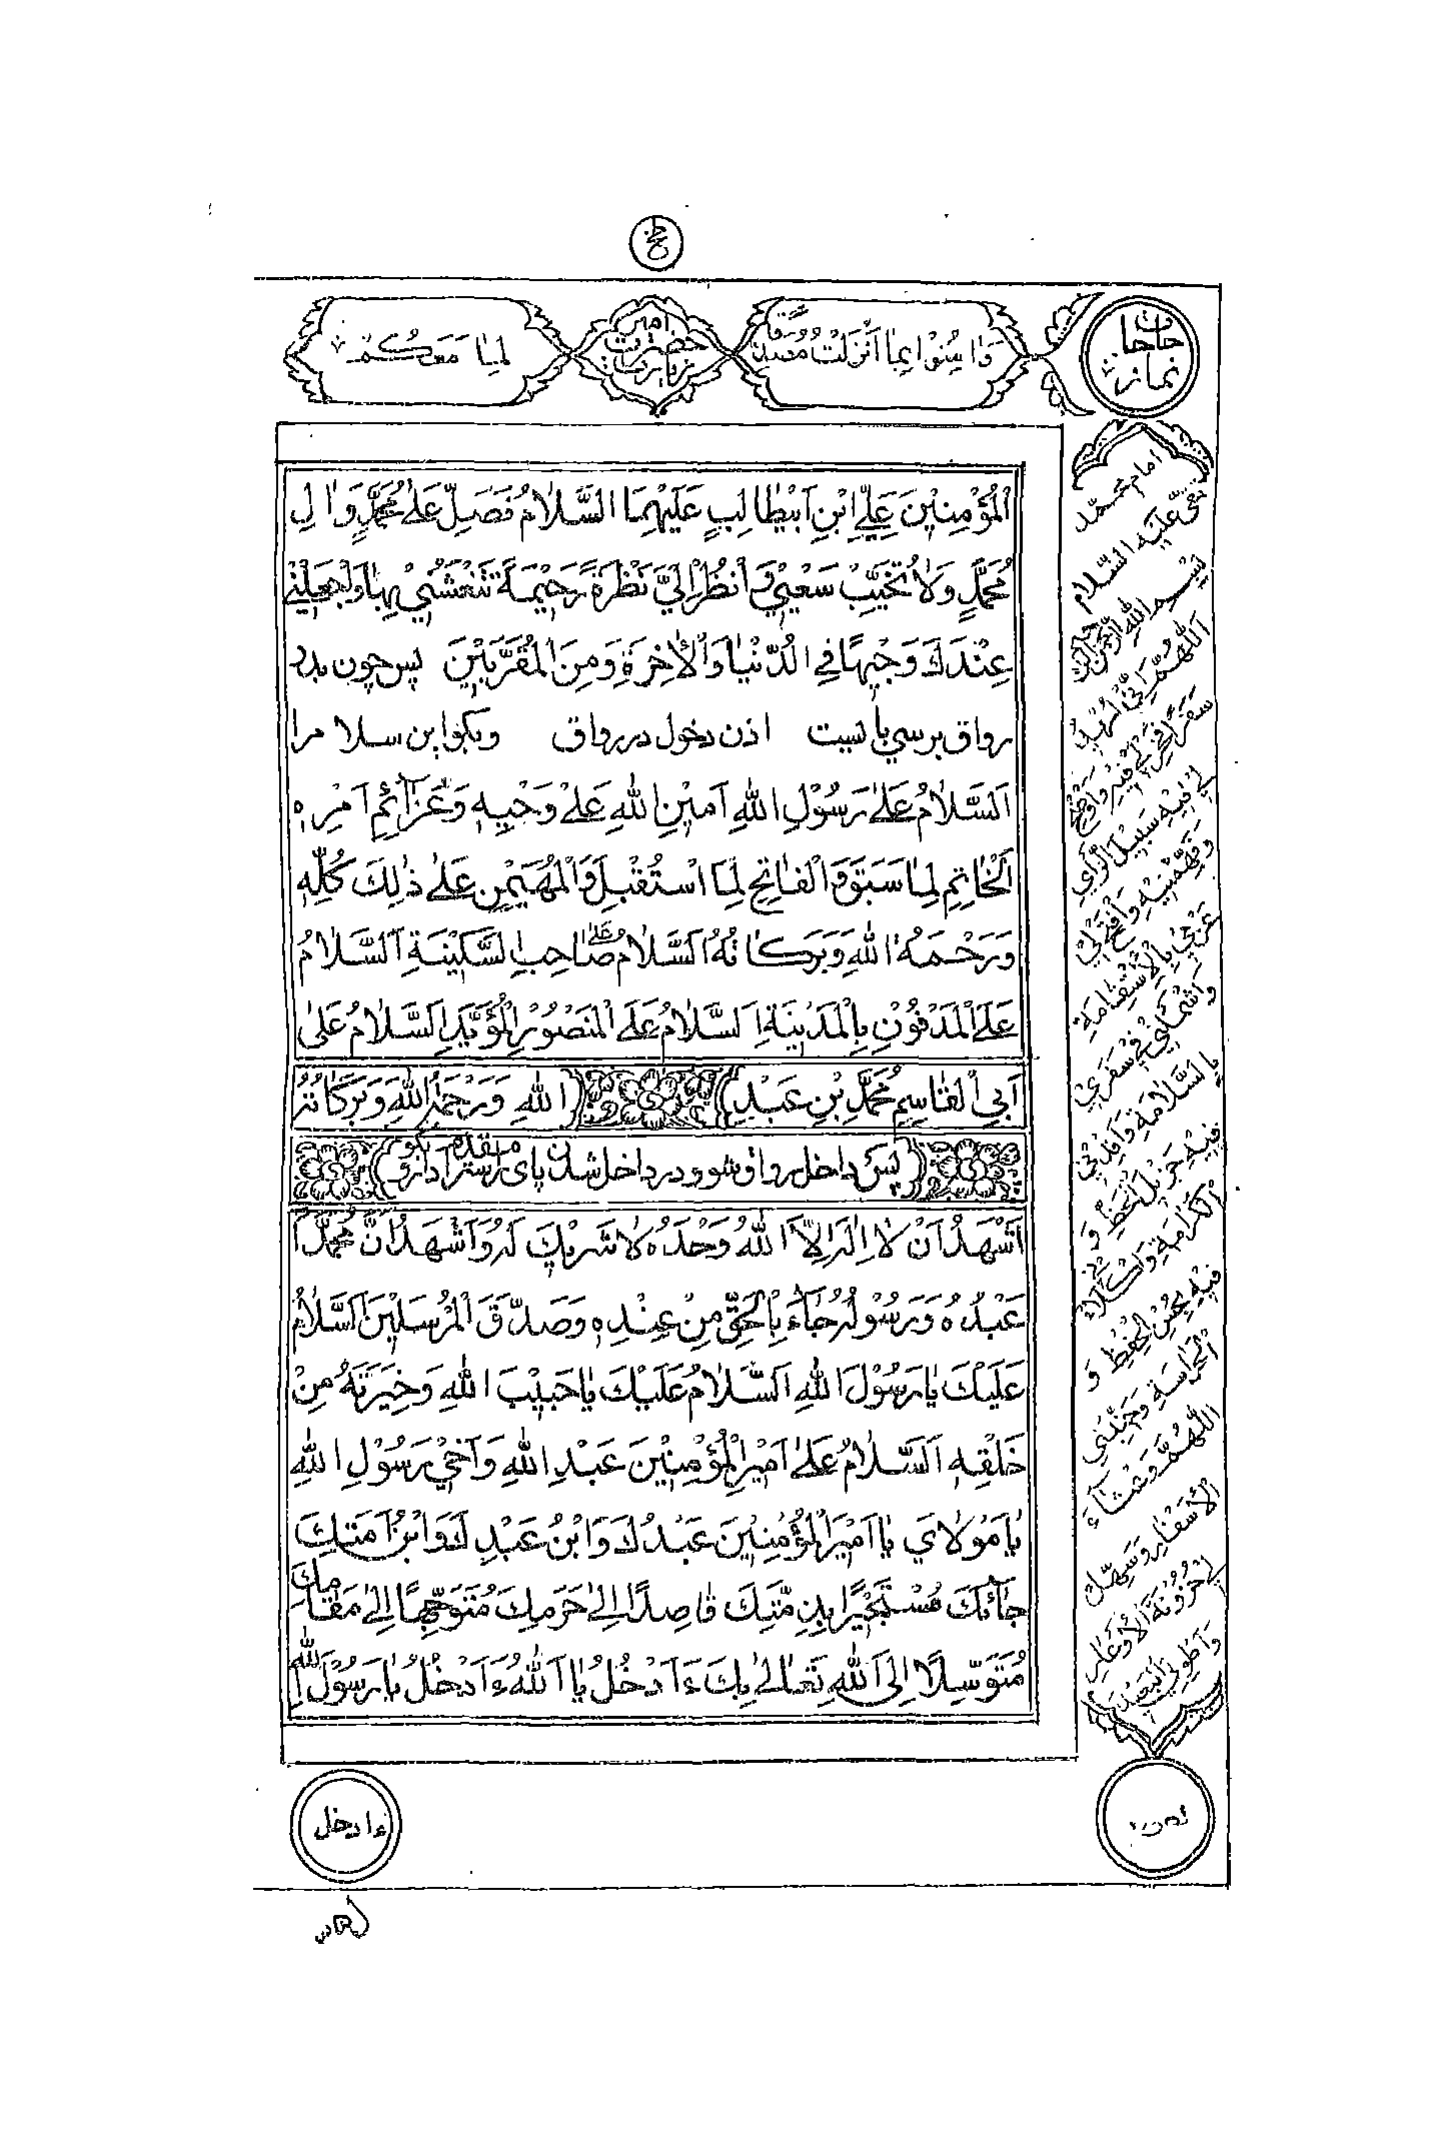 وَاٰمِنُوْا بِمٰا اَنْزَلْتُ مُصَدِّقًا
زیارت حضرت امیر
لِمٰا مَعَكُمْ
حاجات نماز
اَلْمُؤْمِنِيْنَ عَلِيِّ ابْنِ اَبِيْطٰالِبٍ عَلَيْهِمَا السَّلٰامُ فَصَلِّ عَلىٰ مُحَمَّدٍ وَاٰلِ
مُحَمَّدٍ وَلاٰ تُخَيِّبْ سَعْيِيْ وَ انْظُرْ اِلَيَّ نَظْرَةً رَحِيْمَةً تَنْعَشُنِيْ بِهٰا وَاجْعَلْنِيْ
عِنْدَكَ وَجِيْهًا فِي الدُّنْيٰا وَالْاٰخِرَةِ وَمِنَ الْمُقَرَّبِيْنَ پس چون بدر
رواق برسي بايست اذن دخول در رواق وبكو اين سلام را
اَلسَّلاٰمُ عَلىٰ رَسُوْلِ اللّٰهِ اَمِيْنِ اللّٰهِ عَلىٰ وَحْيِهٖ وَعَزٰٓائِمِ اَمْرِهٖ
اَلْخٰاتِمِ لِمٰا سَبَقَ وَالْفٰاتِحِ لِمَا اسْتُقْبِلَ وَالْمُهَيْمِنِ عَلىٰ ذٰلِكَ كُلِّهٖ
وَرَحْمَةُ اللّٰهِ وَبَرَكٰاتُهُ اَلسَّلاٰمُ عَلىٰ صٰاحِبِ السَّكِيْنَةِ اَلسَّلاٰمُ
عَلَى الْمَدْفُوْنِ بِالْمَدِيْنَةِ اَلسَّلاٰمُ عَلَى الْمَنْصُوْرِ الْمُؤَيَّدِ اَلسَّلاٰمُ عَلىٰ
اَبِي الْقٰاسِمِ مُحَمَّدِ بْنِ عَبْدِ اللّٰهِ وَرَحْمَةُ اللّٰهِ وَبَرَكٰاتُهُ
پس داخل رواق شو و در داخل شدن پای راسترا مقدم دار و بكو
اَشْهَدُ اَنْ لاٰ اِلٰهَ اِلاَّ اللّٰهُ وَحْدَهُ لاٰ شَرِيْكَ لَهُ وَاَشْهَدُ اَنَّ مُحَمَّدًا
عَبْدُهُ وَرَسُوْلُهُ جٰٓاءَ بِالْحَقِّ مِنْ عِنْدِهٖ وَصَدَّقَ الْمُرْسَلِيْنَ اَلسَّلاٰمُ
عَلَيْكَ يٰا رَسُوْلَ اللّٰهِ اَلسَّلاٰمُ عَلَيْكَ يٰا حَبِيْبَ اللّٰهِ وَخِيَرَتَهُ مِنْ
خَلْقِهٖ اَلسَّلاٰمُ عَلىٰ اَمِيْرِ الْمُؤْمِنِيْنَ عَبْدِ اللّٰهِ وَاَخِيْ رَسُوْلِ اللّٰهِ
يٰا مَوْلاٰيَ يٰا اَمِيْرَ الْمُؤْمِنِيْنَ عَبْدُكَ وَابْنُ عَبْدِكَ وَابْنُ اَمَتِكَ
جٰٓائَكَ مُسْتَجِيْرًا بِذِمَّتِكَ قٰاصِدًا اِلىٰ حَرَمِكَ مُتَوَجِّهًا اِلىٰ مَقٰامِكَ
مُتَوَسِّلًا اِلَى اللّٰهِ تَعٰالىٰ بِكَ ءَاَدْخُلُ يٰا اَللّٰهُ ءَاَدْخُلُ يٰا رَسُوْلَ اللّٰهِ
امام محمد
تقی علیه السّلام
بسم الله الرّحمن الرّحیم
اَللّٰهُمَّ اِنِّيْ اُرِيْدُ
سَفَرًا فَخِرْ لِيْ فِيْهِ وَاَوْضِحْ
لِيْ فِيْهِ سَبِيْلَ الرَّأْيِ
وَفَهِّمْنِيْهِ وَافْتَحْ لِيْ
عَزْمِيْ بِالْاِسْتِقٰامَةِ
وَاشْمَلْنِيْ فِيْ سَفَرِيْ
بِالسَّلاٰمَةِ وَاَفِدْنِيْ
فِيْهِ جَزِيْلَ الْحَظِّ وَ
الْكَرٰامَةِ وَاكْلَأْنِيْ
فِيْهِ بِحُسْنِ الْحِفْظِ وَ
الْحِرٰاسَةِ وَجَنِّبْنِي
اللّٰهُمَّ وَعْثٰٓاءَ
الْاَسْفٰارِ وَسَهِّلْ
لِيْ حُزُوْنَةَ الْاَوْعٰارِ
وَاطْوِ لِيَ الْبَعِيْدَ
ءادخل